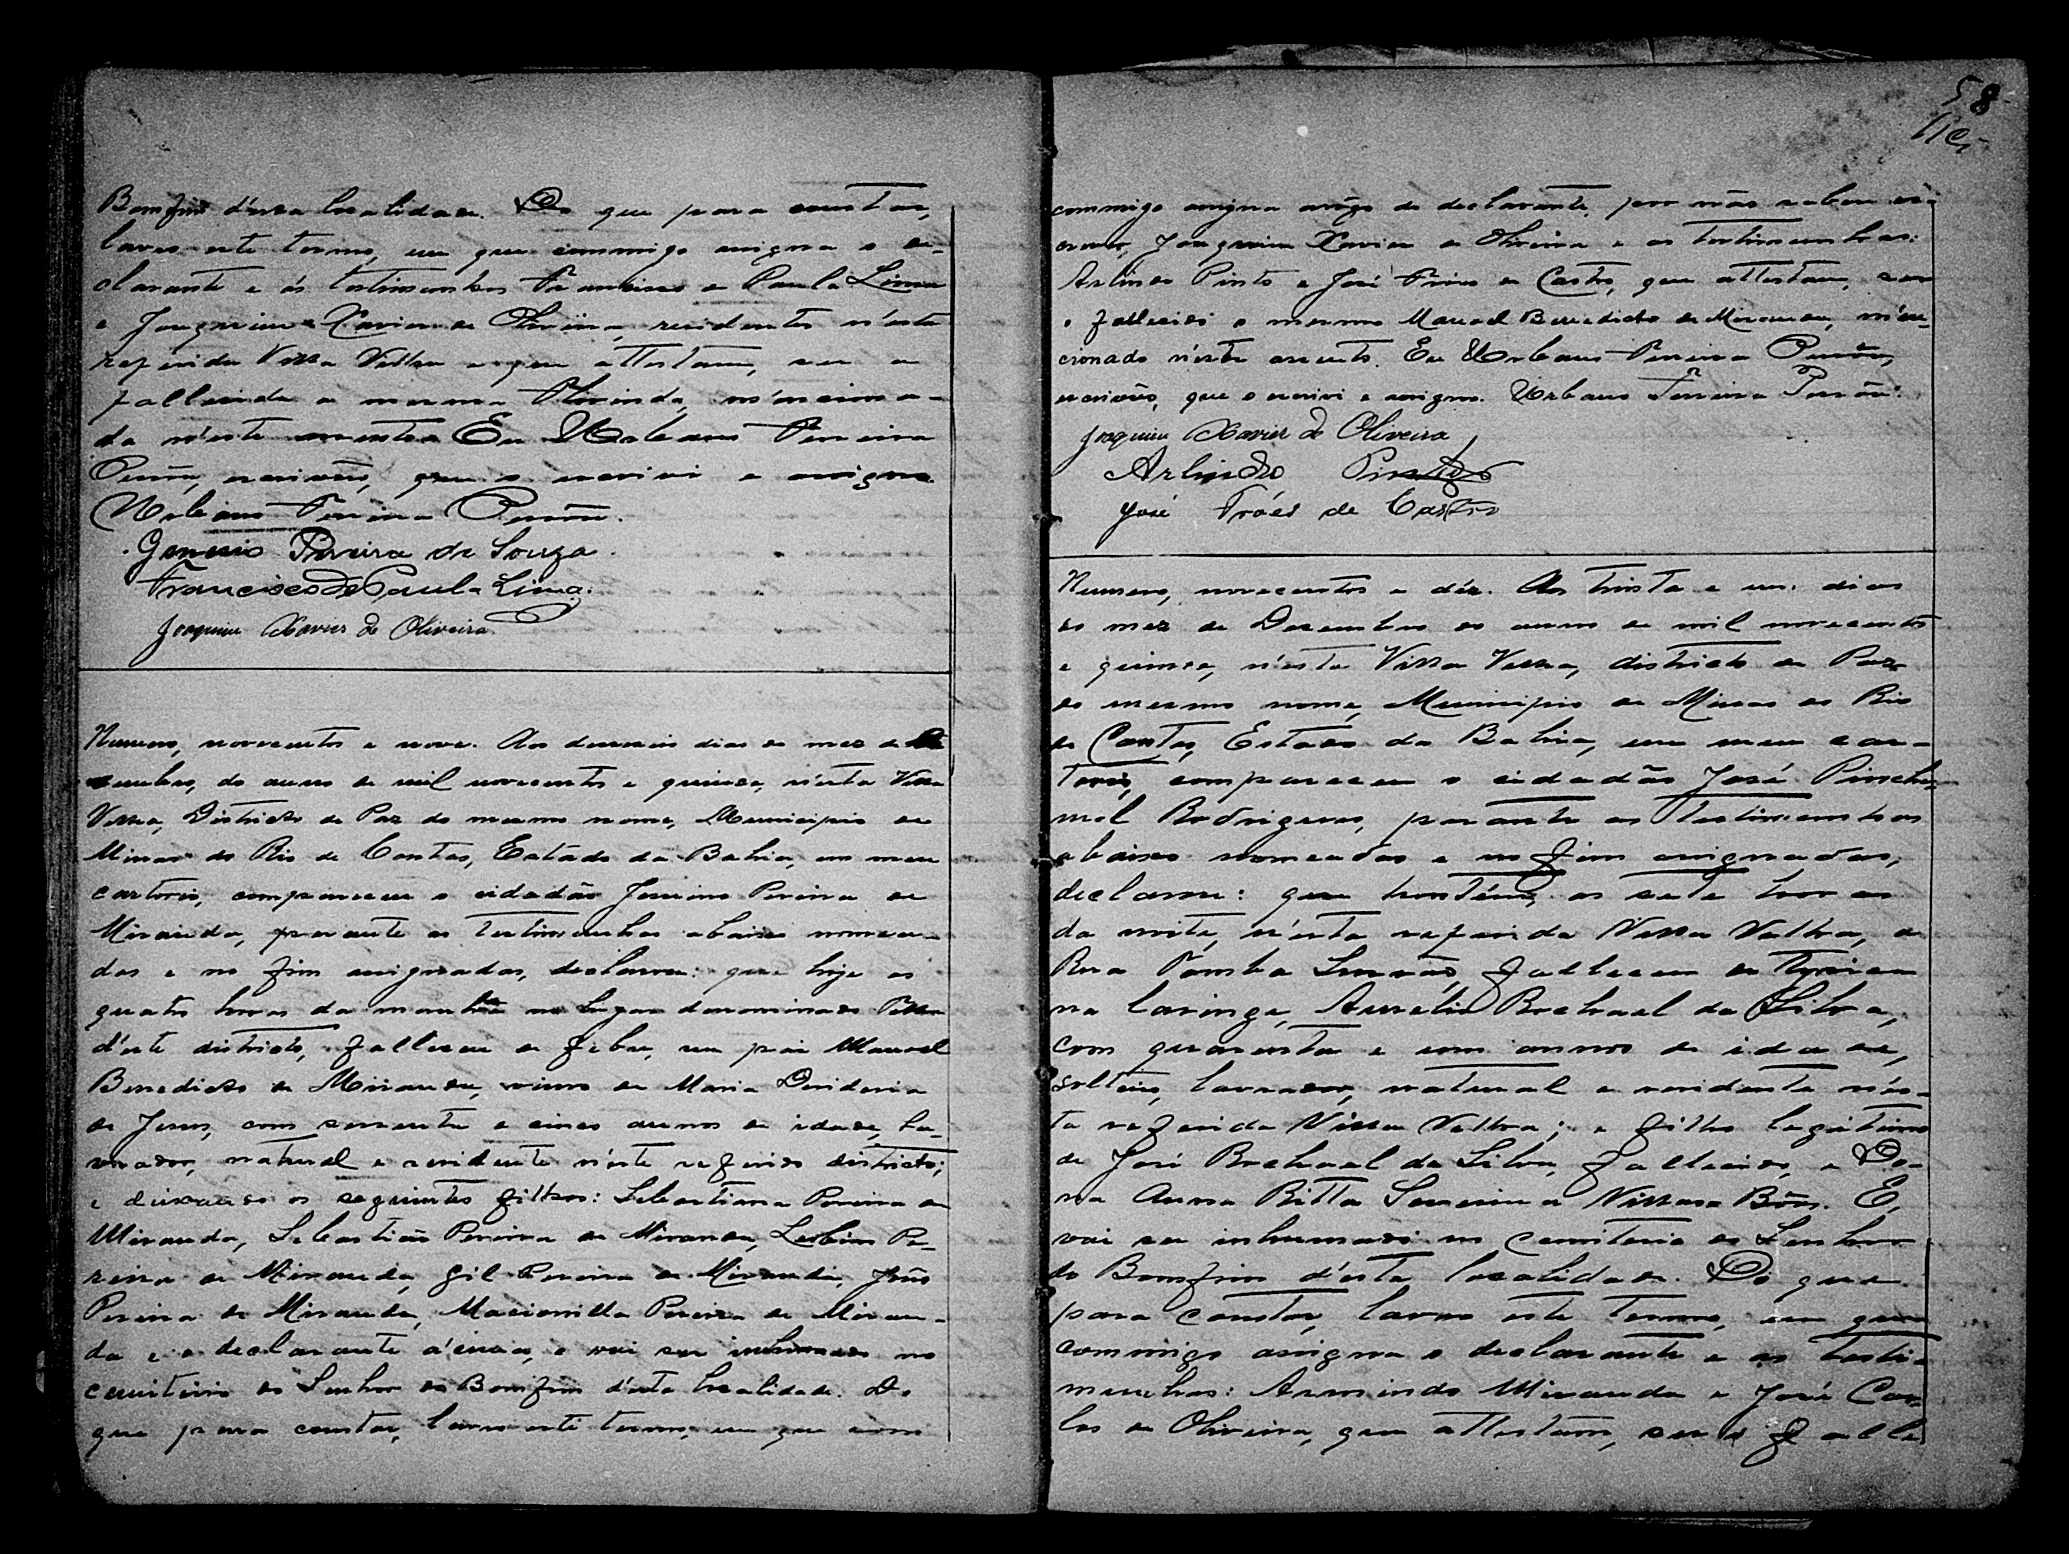 Bomfim d'esta localidade. Do que para constar,
lavro este termo, em que commigo assigna o de-
clarante e ás testimunhas Francisco de Paula Lima
e Joaquim Xavier de Oliveira, residentes n'esta
referida Villa Velha e que attestam, ser a
fallecida a mesma Florinda, menciona-
da n'este assento. Eu Urbano Ferreira
escrivão, que o escrevi e assigno.
Urbano Ferreira
Genesio Pereira de Souza.
Francisco de Paula Lima.
Joaquim Xavier de Oliveira
Numero, novecentos e nove. Aos desesseis dias do mez de De
sembro, do anno de mil novecentos e quinze, n'esta Villa
Velha, Districto de Paz do mesmo nome, Municipio de
Minas do Rio de Contas, Estado da Bahia, em meu
cartorio, compareceu o cidadão Pereira de
Miranda, perante as testimunhas abaixo nomea-
das e no fim assignadas, declarou: que hoje as
quatro horas da manhã no lugar denominado
d'este districto, falleceu de febre, seu pai Manoel
Benedicto de Miranda, viuvo de Maria Desideria
de Jesus, com sessenta e cinco annos de idade, la-
vrador, natural e residente n'este referido districto;
e deixando os seguintes filhos: Sebastiana Pereira de
Miranda, Sebastião Pereira de Miranda, Pe-
reira de Miranda, Gil Pereira de Miranda, João
Pereira de Miranda, Pereira de Miran-
da e o declarante acima, e vai ser inhumado no
cemiterio do Senhor do Bomfim d'esta localidade. Do
que para constar, lavro este termo, em que com
58
commigo assigna arôgo do declarante, por não saber es-
crever, Joaquim Xavier de Oliveira e as testimunhas:
Arlindo Pinto e José Fróes de Castro, que attestam, ser
o fallecido o mesmo Manoel Benedicto de Miranda, men-
cionado n'este assento. Eu Urbano Ferreira
escrivão, que o escrevi e assigno. Urbano Ferreira
Joaquim Xavier de Oliveira
Arlindo Pinto
José Fróes de Castro
Numero, novecentos e déz. Aos trinta e um dias
do mez de Desembro do anno de mil novecentos
e quinze, n'esta Villa Velha, districto de Paz
do mesmo nome, Municipio de Minas do Rio
de Contas, Estado da Bahia, em meu car-
torio, compareceu o cidadão José
Rodrigues, perante as testimunhas
abaixo nomeadas e no fim assignadas,
declarou: que hontem, as sete horas
da noite, n'esta referida Villa Velha, a
Rua falleceu de
na laringe, Aurelio da Silva,
com quarenta e um annos de idade,
solteiro, lavrador, natural e residente nes-
ta referida Villa Velha; e filho legitimo
de José da Silva, fallecido, e Do-
na Anna Ritta Villas Bôas. E,
vai ser inhumado no cemiterio do Senhor
do Bomfim d'esta localidade. Do que
para constar, lavro este termo, em que
commigo assigna o declarante e as testi-
munhas: Armindo Miranda e José Car-
los de Oliveira, que attestam, ser o falle